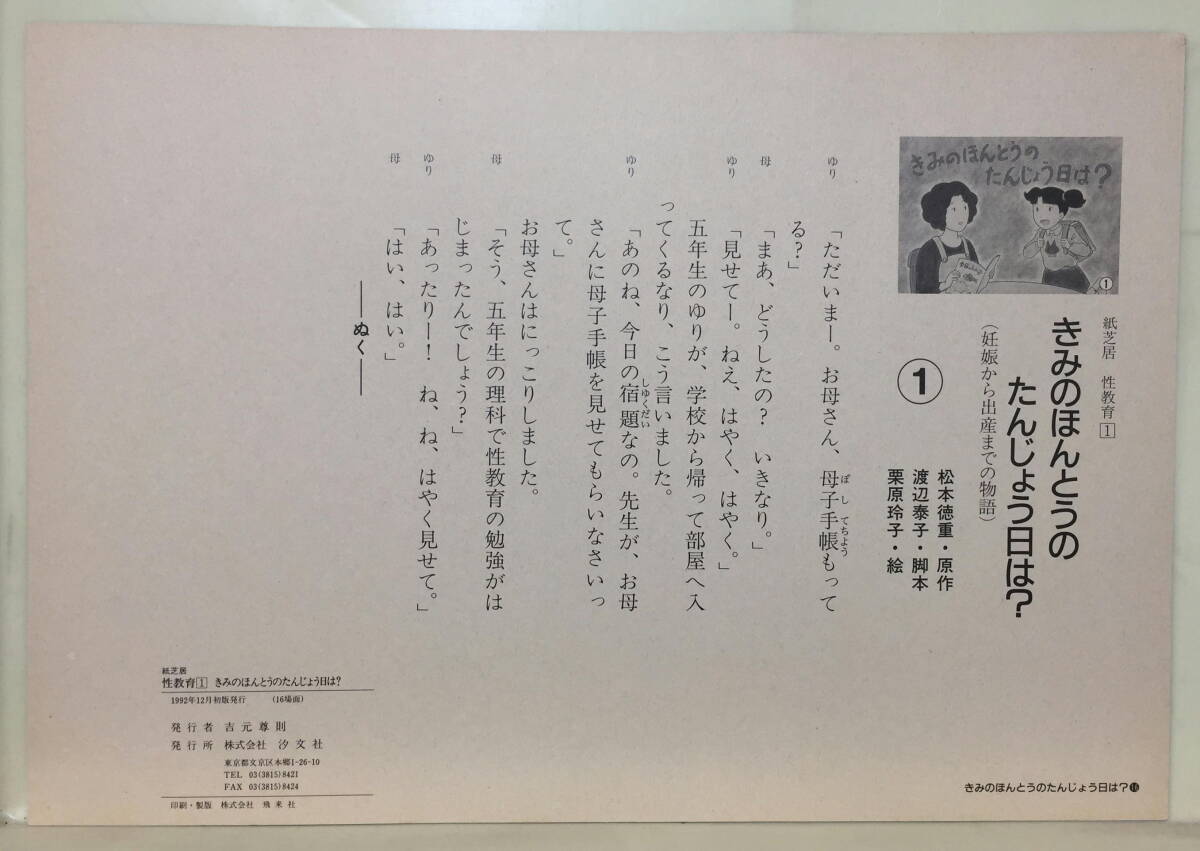 きみのほんとうの
たんじょう日は?
①
紙芝居 性教育1
きみのほんとうの
たんじょう日は?
(妊娠から出産までの物語)
①
松本徳重・原作
渡辺泰子・脚本
栗原玲子・絵
ゆり 「ただいまー。お母さん、母子手帳もって
ぼしてちよう
る?」
母 「まあ、どうしたの? いきなり。」
ゆり 「見せてー。ねえ、はやく、はやく。」
五年生のゆりが、学校から帰って部屋へ入
ってくるなり、こう言いました。
ゆり 「あのね、今日の宿題なの。先生が、お母
しゆくだい
さんに母子手帳を見せてもらいなさいっ
て。」
お母さんはにっこりしました。
母 「そう、五年生の理科で性教育の勉強がは
じまったんでしょう?」
ゆり 「あったりー! ね、ね、はやく見せて。」
母 「はい、はい。」
――ぬく――
紙芝居
性教育1 きみのほんとうのたんじょう日は?
1992年12月初版発行 (16場面)
発行者 吉元尊則
発行所 株式会社 汐文社
東京都文京区本郷1-26-10
TEL 03(3815)8421
FAX 03(3815)8424
印刷・製版 株式会社 飛来社
きみのほんとうのたんじょう日は?⓰